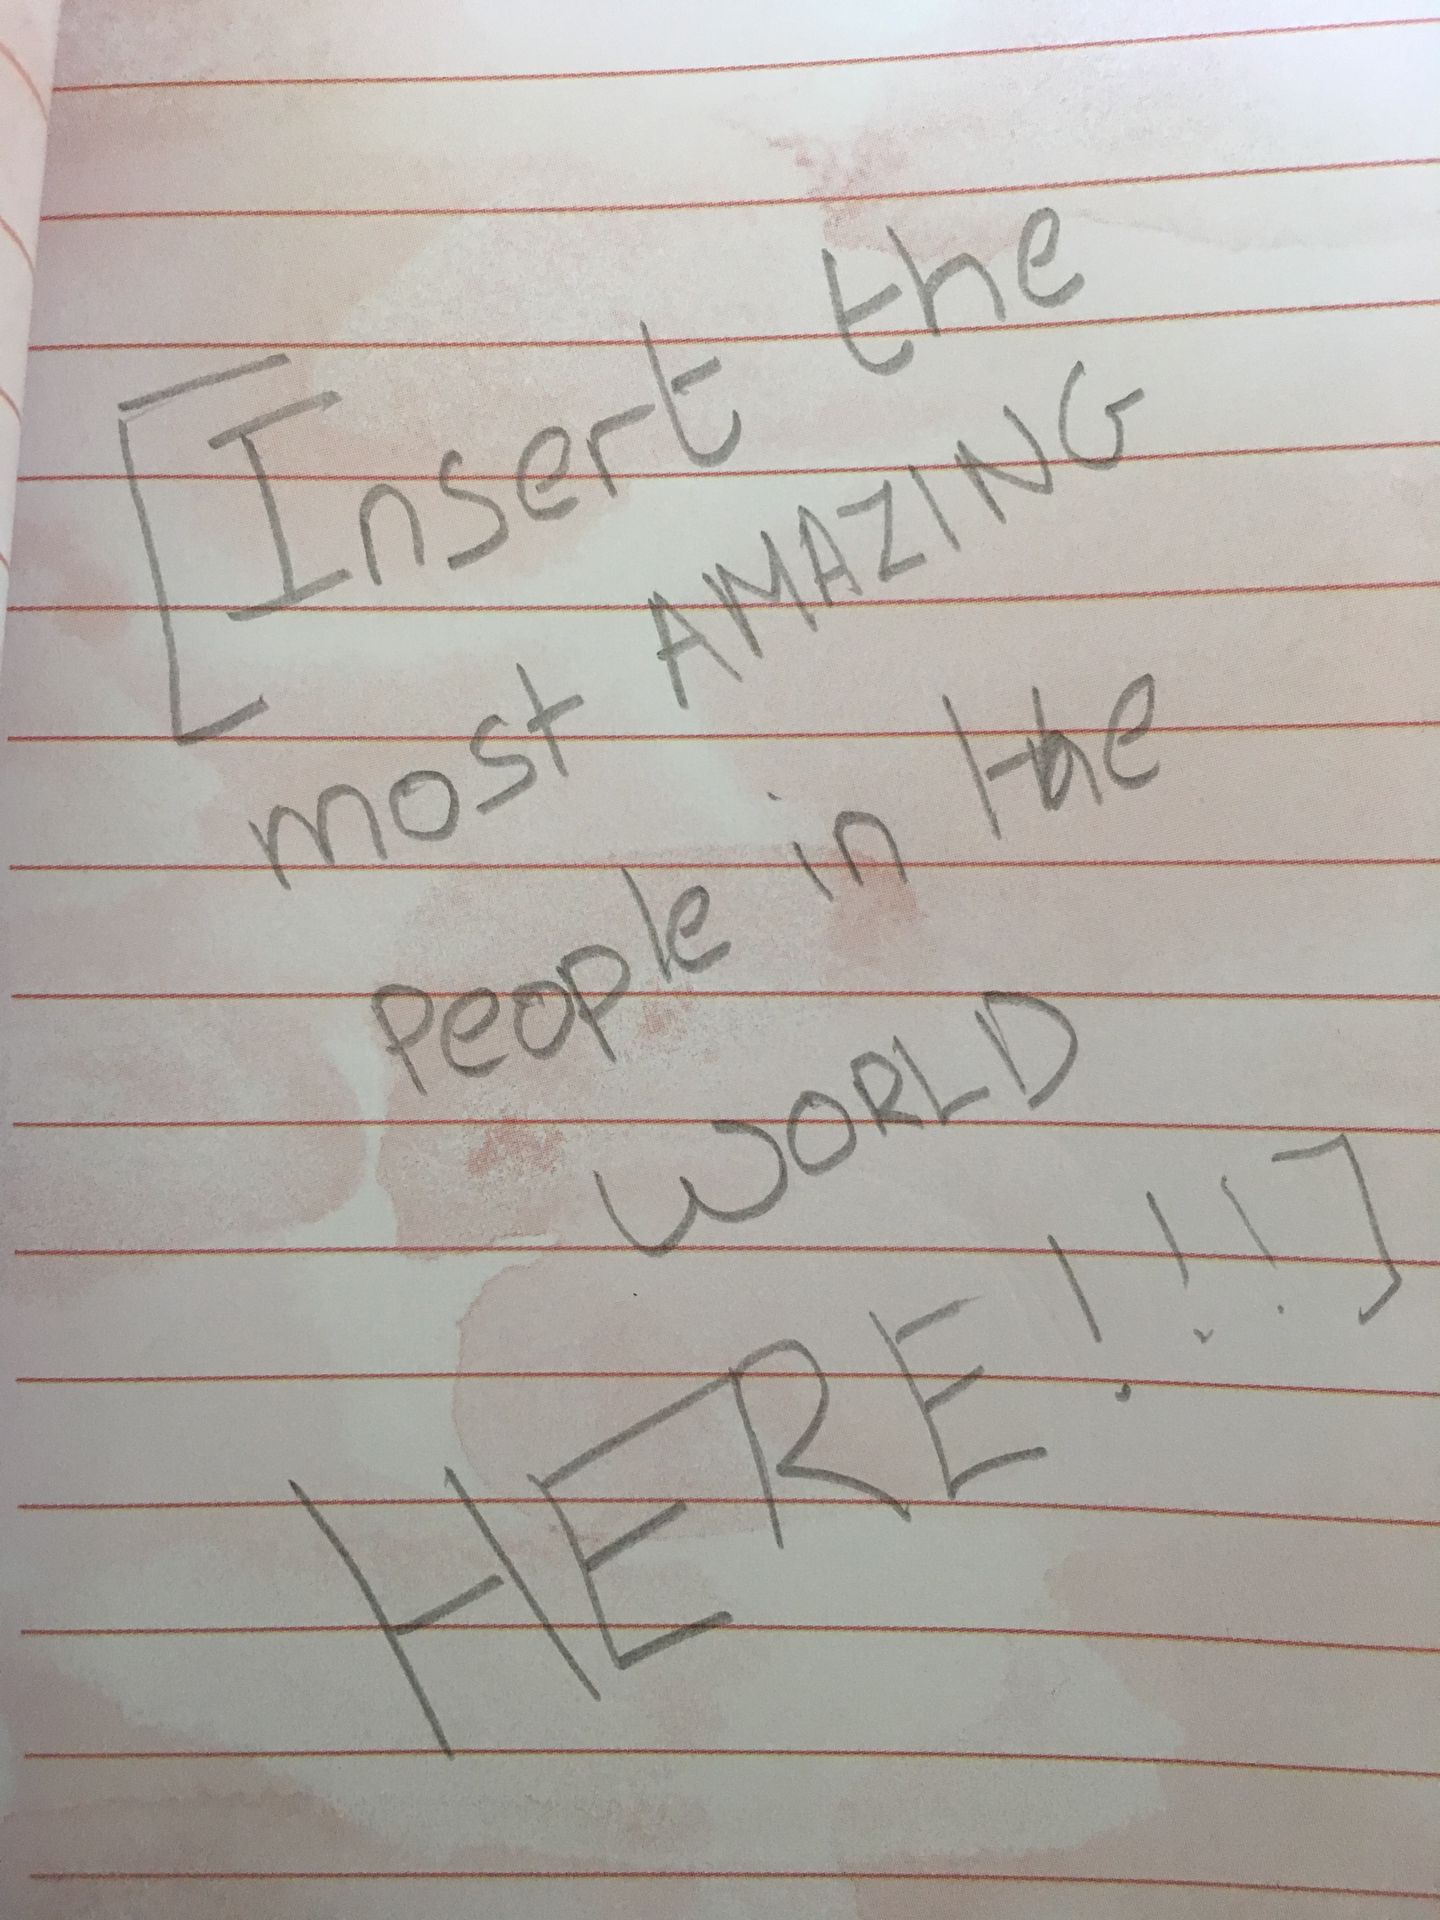 [Insert the
most AMAZING
People in the
WORLD
HERE!!!]